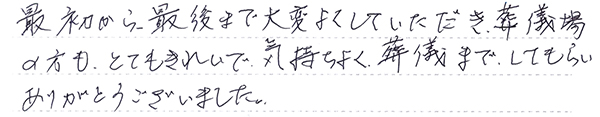 最初から、最後まで大変よくしていただき、葬儀場
の方も、とてもきれいで、気持ちよく、葬儀まで、してもらい
ありがとうございました。